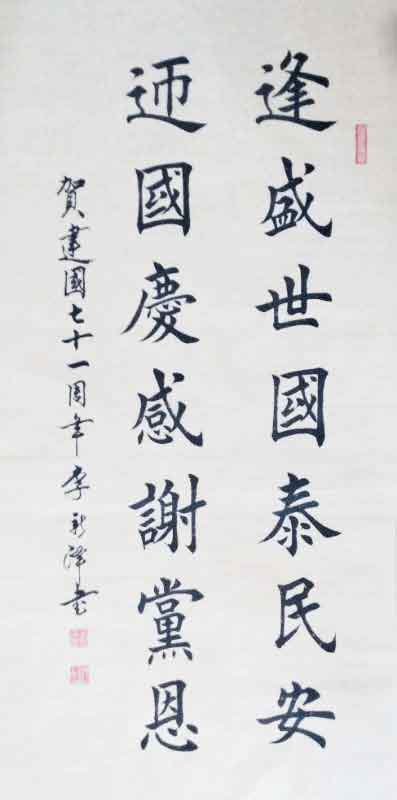 逢盛世國泰民安
迊國慶感謝黨恩
賀建國七十一周年李新書